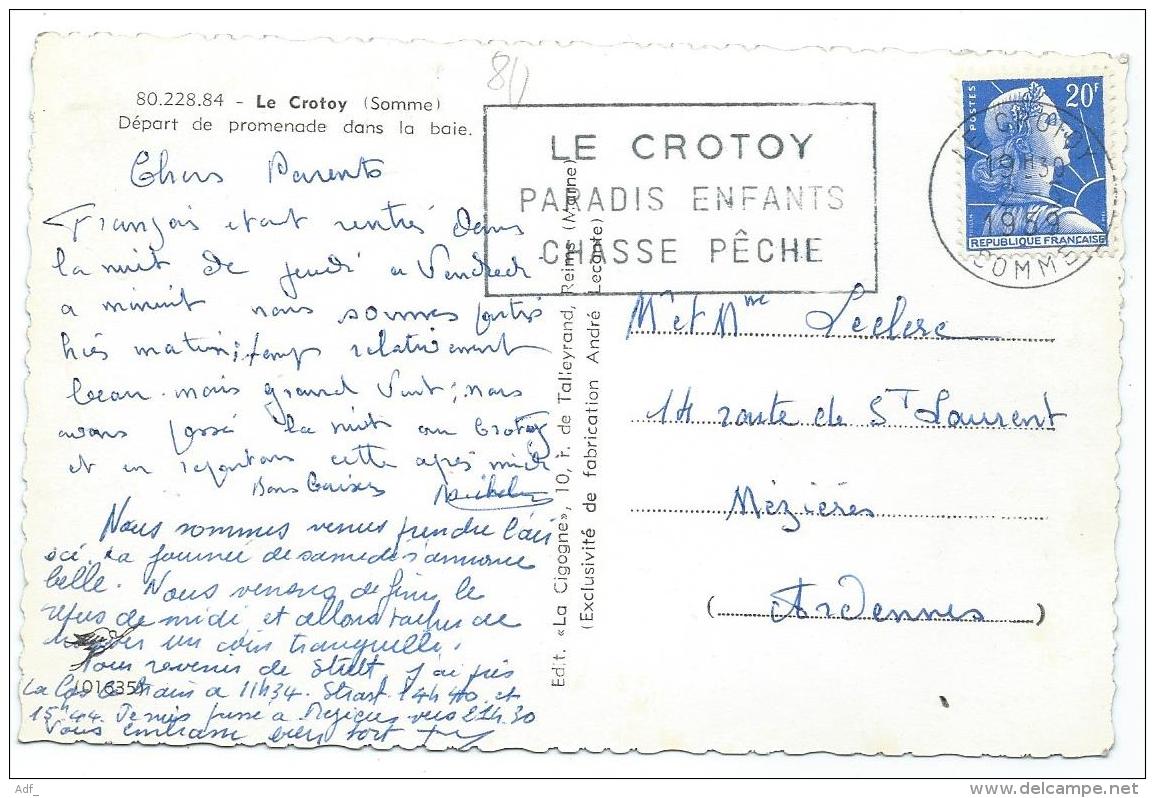 80
80.228.84 - Le Crotoy (Somme)
Départ de promenade dans la baie.
Chers Parents
François étant rentré dans
la nuit de jeudi a Vendredi
a minuit nous sommes partis
hier matin; temps relativement
beau mais grand vent; nous
avons passé la nuit au Crotoy
et en repartons cette après midi
Bons baisers
Nous sommes venus prendre l'air
ici. La journée de samedi s'annonce
belle. Nous venons de finir le
repas de midi et allons tacher de
trouver un coin tranquille.
Pour revenir de j'ai pris
à 11h34. Strasb. 14h40 et
15h44. Je suis passé à Mézières vers 21h30
Vous embrasse bien fort
101635
Edit. «La Cigogne», 10, r. de Talleyrand, Reims (Marne)
(Exclusivité de fabrication André Leconte)
LE CROTOY
PARADIS ENFANTS
CHASSE PÊCHE
POSTES
20F
REPUBLIQUE FRANÇAISE
LE CROTOY
19H30
1959
SOMME
Mr et Mme Leclerc
14 route de St Laurent
Mézières
(Ardennes)
Adf_